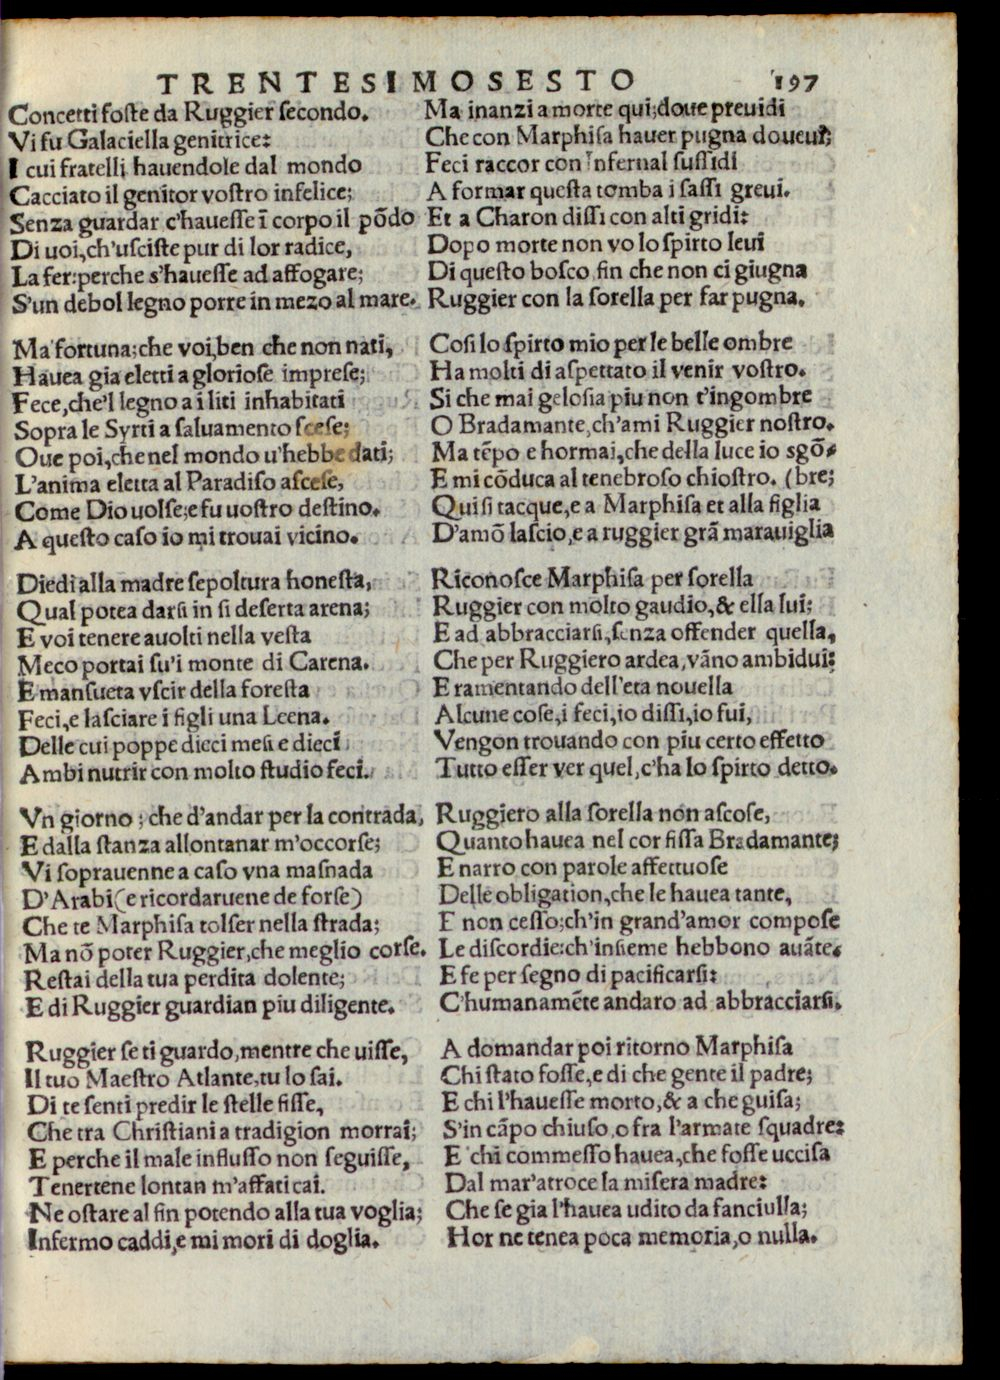 TRENTESIMOSESTO 197
Concetti foste da Ruggier secondo.
Vi fu Galaciella genitrice:
I cui fratelli hauendole dal mondo
Cacciato il genitor vostro infelice;
Senza guardar c'hauesse ī corpo il põdo
Di uoi, ch'usciste pur di lor radice,
La fer: perche s'hauesse ad affogare;
S'un debol legno porre in mezo al mare.
Ma fortuna; che voi, ben che non nati,
Hauea gia eletti a gloriose imprese;
Fece, che'l legno a i liti inhabitati
Sopra le Syrti a saluamento scese;
Oue poi, che nel mondo u'hebbe dati;
L'anima eletta al Paradiso ascese,
Come Dio uolse; e fu uostro destino.
A questo caso io mi trouai vicino.
Diedi alla madre sepoltura honesta,
Qual potea darsi in si deserta arena;
E voi tenere auolti nella vesta
Meco portai su'i monte di Carena.
E mansueta vscir della foresta
Feci, e lasciare i figli una Leena.
Delle cui poppe dieci mesi e dieci
Ambi nutrir con molto studio feci.
Vn giorno; che d'andar per la contrada,
E dalla stanza allontanar m'occorse;
Vi soprauenne a caso vna masnada
D'Arabi (e ricordaruene de forse)
Che te Marphisa tolser nella strada;
Ma nõ poter Ruggier, che meglio corse.
Restai della tua perdita dolente;
E di Ruggier guardian piu diligente.
Ruggier se ti guardo, mentre che uisse,
Il tuo Maestro Atlante, tu lo sai.
Di te senti predir le stelle fisse,
Che tra Christiani a tradigion morrai;
E perche il male influsso non seguisse,
Tenertene lontan m'affaticai.
Ne ostare al fin potendo alla tua voglia;
Infermo caddi, e mi mori di doglia.
Ma inanzi a morte qui; doue preuidi
Che con Marphisa hauer pugna doueui;
Feci raccor con infernal sussidi
A formar questa tomba i sassi greui.
Et a Charon dissi con alti gridi:
Dopo morte non vo lo spirto leui
Di questo bosco fin che non ci giugna
Ruggier con la sorella per far pugna.
Cosi lo spirto mio per le belle ombre
Ha molti di aspettato il venir vostro.
Si che mai gelosia piu non t'ingombre
O Bradamante, ch'ami Ruggier nostro.
Ma tẽpo e hormai, che della luce io sgõ-
E mi cõduca al tenebroso chiostro. (bre;
Qui si tacque, e a Marphisa et alla figlia
D'amõ lascio, e a ruggier grã marauiglia
Riconosce Marphisa per sorella
Ruggier con molto gaudio, & ella lui:
E ad abbracciarsi, senza offender quella,
Che per Ruggiero ardea, vãno ambidui:
E ramentando dell'eta nouella
Alcune cose, i feci, io dissi, io fui,
Vengon trouando con piu certo effetto
Tutto esser ver quel, c'ha lo spirto detto.
Ruggiero alla sorella non ascose,
Quanto hauea nel cor fissa Bradamante;
E narro con parole affettuose
Delle obligation, che le hauea tante,
E non cesso; ch'in grand'amor compose
Le discordie: ch'insieme hebbono auãte.
E fe per segno di pacificarsi:
C'humanamẽte andaro ad abbracciarsi.
A domandar poi ritorno Marphisa
Chi stato fosse, e di che gente il padre;
E chi l'hauesse morto, & a che guisa;
S'in cãpo chiuso, o fra l'armate squadre:
E chi commesso hauea, che fosse uccisa
Dal mar'atroce la misera madre:
Che se gia l'hauea udito da fanciulla;
Hor ne tenea poca memoria, o nulla.